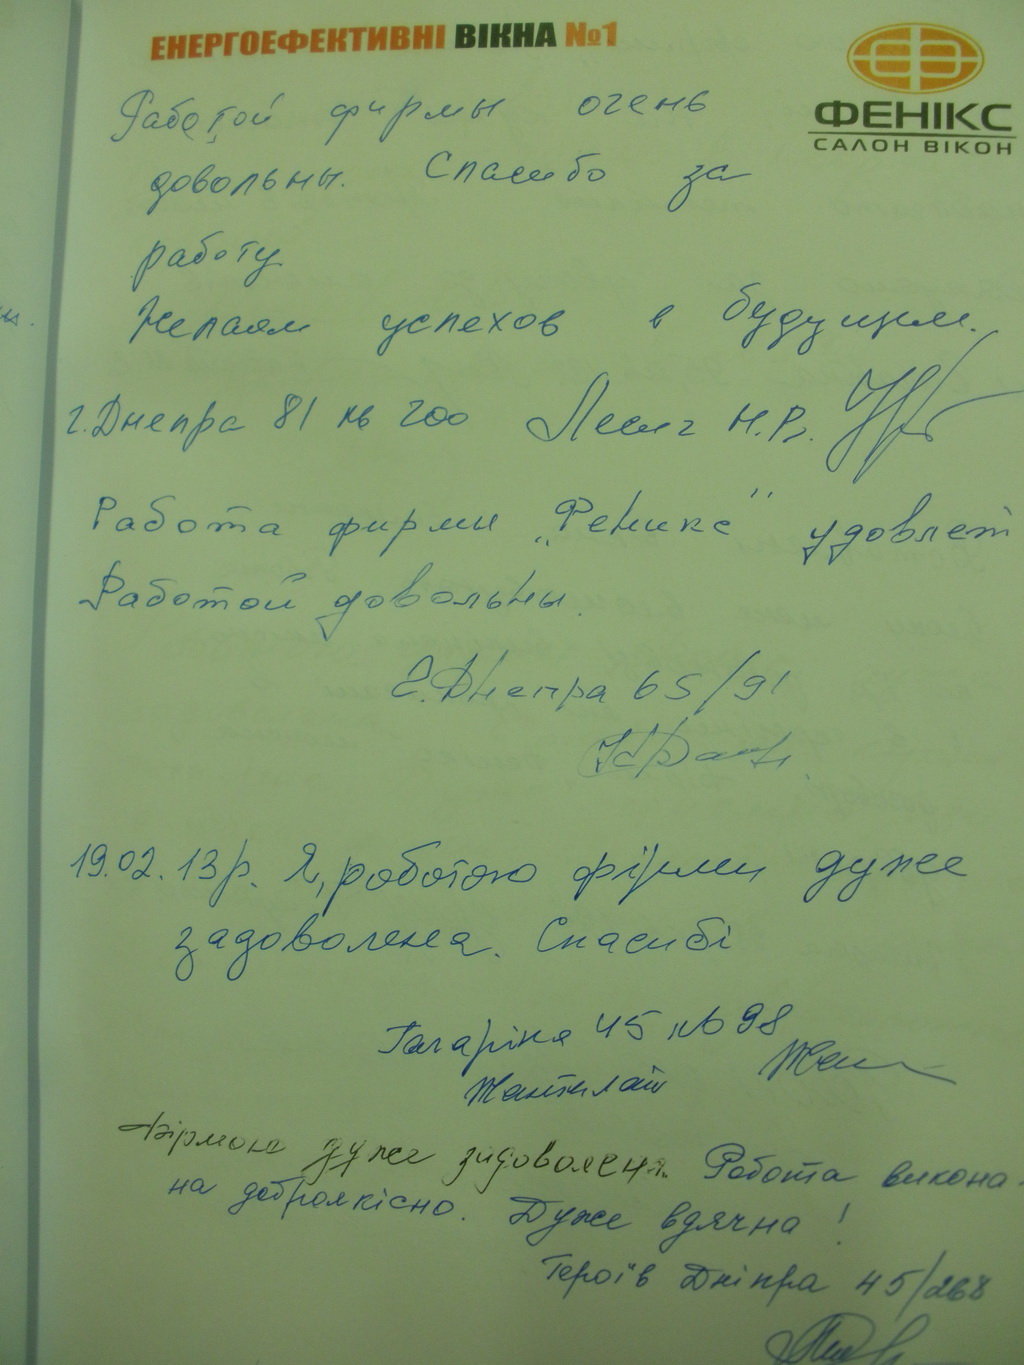 ЕНЕРГОЕФЕКТИВНІ ВІКНА №1
ФЕНІКС
САЛОН ВІКОН
Работой фирмы очень
довольны. Спасибо за
работу
Желаем успехов в будущем.
г. Днепра 81 кв 200 Н.Р.
Работа фирмы „Феникс" удовлет
Работой довольны.
Г. Днепра 65/91
19.02.13р. Я, роботою фірми дуже
задоволена. Спасибі
Гагаріна 45 кв 98
Фірмою дуже задоволена. Робота викона-
на доброякісно. Дуже вдячна!
Героїв Дніпра 45/268